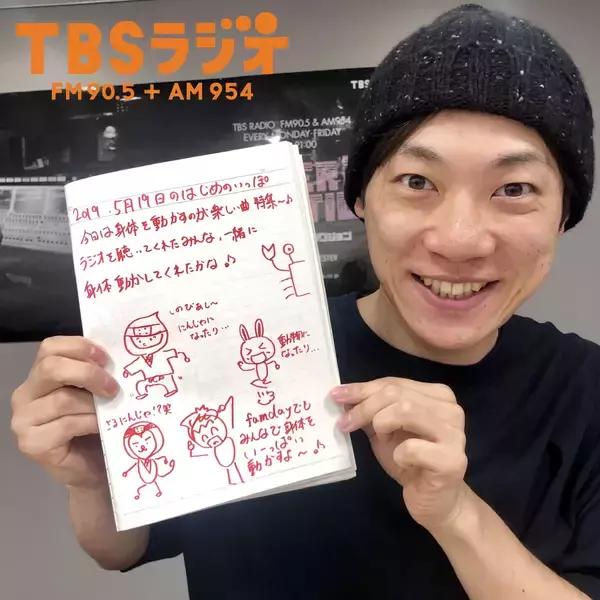 TBSラジオ
FM90.5 + AM954
TBS RADIO FM90.5 & AM954
EVERY MONDAY-FRIDAY
2019.5月19日のはじめのいっぽ
今日は身体を動かすのが楽しい曲特集〜♪
ラジオを聴いてくれたみんな、一緒に
身体動かしてくれたかな♪
しのびあし〜
にんじゃに
なったり…
動物に
なったり…
さるにんじゃ!?笑
famdayでも
みんなで身体を
い〜っぱい
動かすよ〜♪